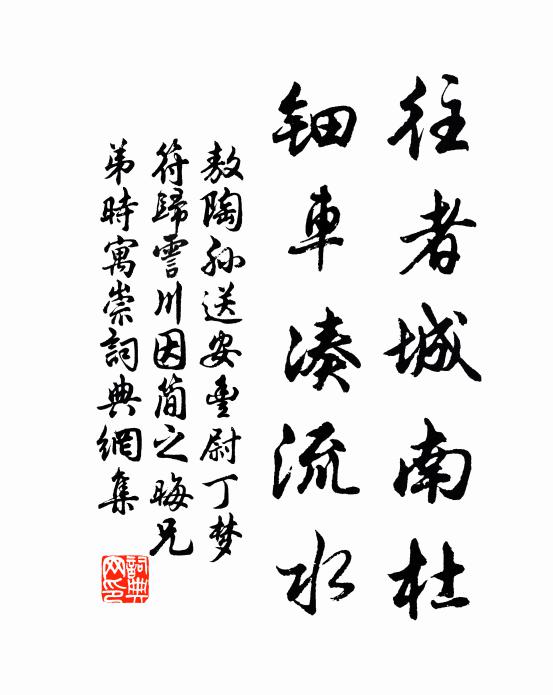 往者城南杜
鈿車湊流水
敖陶孫送安豐尉丁梦
符歸霅川因簡之晦兄
弟時寓崇詞典網集
詞典网印